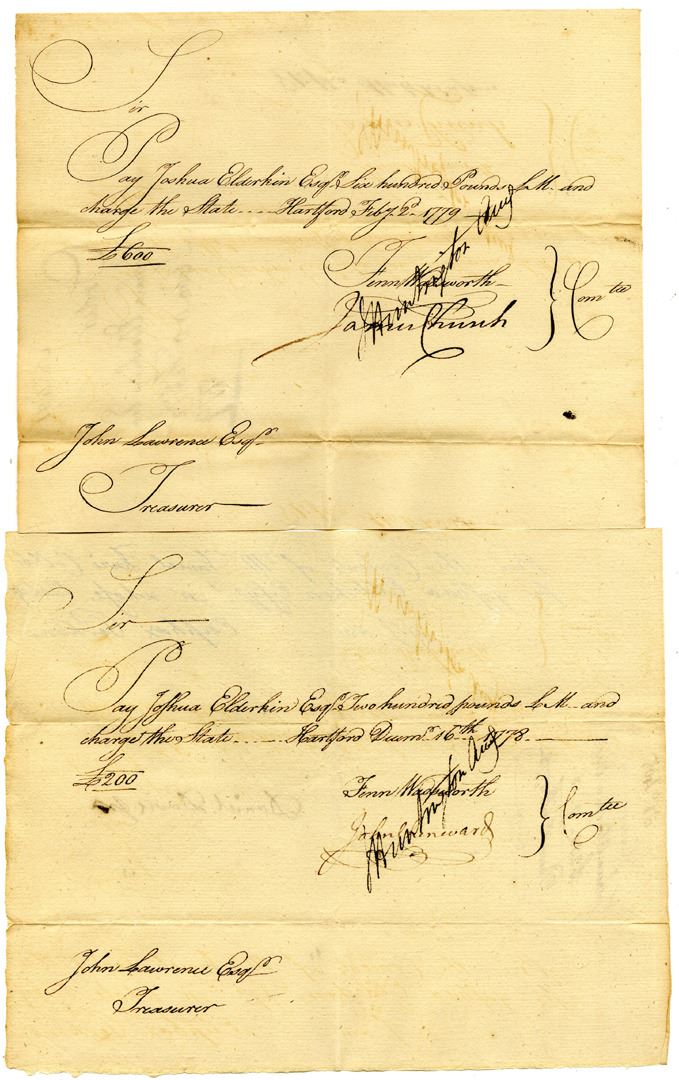 Sir
Pay Joshua Elderkin Esqr. Six hundred Pounds L.M. and
charge the State .... Hartford Feby. 2d. 1779
£600
Fenn Wadsworth
James Church
} Comtee
J Huntington Aud
John Lawrence Esqr.
Treasurer
Sir
Pay Joshua Elderkin Esqr. Two hundred pounds L.M. and
charge the State .... Hartford Decemr. 16th. 1778.
£200
Fenn Wadsworth
John
} Comtee
J Huntington Aud
John Lawrence Esqr.
Treasurer